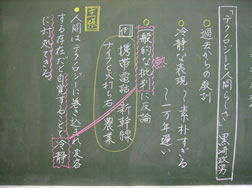 「テクノロジーと人間らしさ」 黒崎政男
●過去からの教訓
●冷静な表現 〜素朴すぎる
〜一万年遅い
●一般的な批判に反論
例 携帯電話・新幹線
ナイフと火打ち石・農業
主張
●人間はテクノロジーに巻き込まれ変容
する存在だと自覚することで冷静
に対処できる